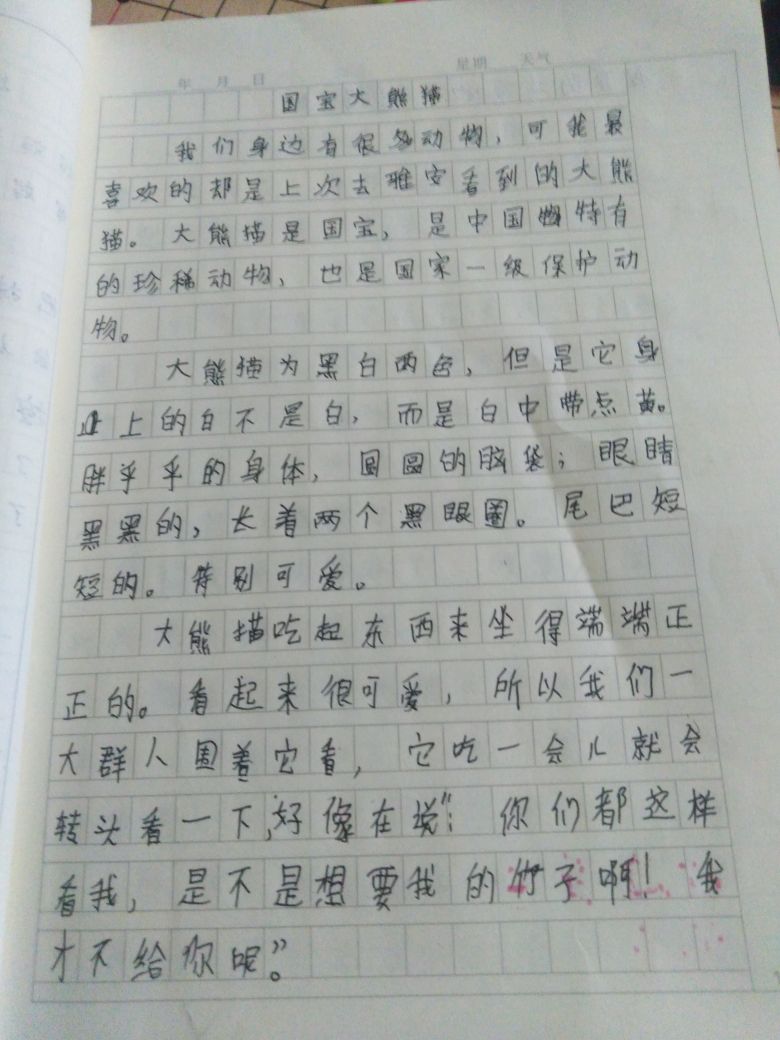 年 月 日 星期 天气
国宝大熊猫
我们身边有很多动物，可我最
喜欢的却是上次去雅安看到的大熊
猫。大熊描是国宝，是中国特有
的珍稀动物，也是国家一级保护动
物。
大熊猫为黑白两色，但是它身
上的白不是白，而是白中带点黄。
胖乎乎的身体，圆圆的脑袋；眼睛
黑黑的，长着两个黑眼圈。尾巴短
短的。特别可爱。
大熊描吃起东西来坐得端端正
正的。看起来很可爱，所以我们一
大群人围着它看，它吃一会儿就会
转头看一下，好像在说“：你们都这样
看我，是不是想要我的竹子啊！我
才不给你呢”。